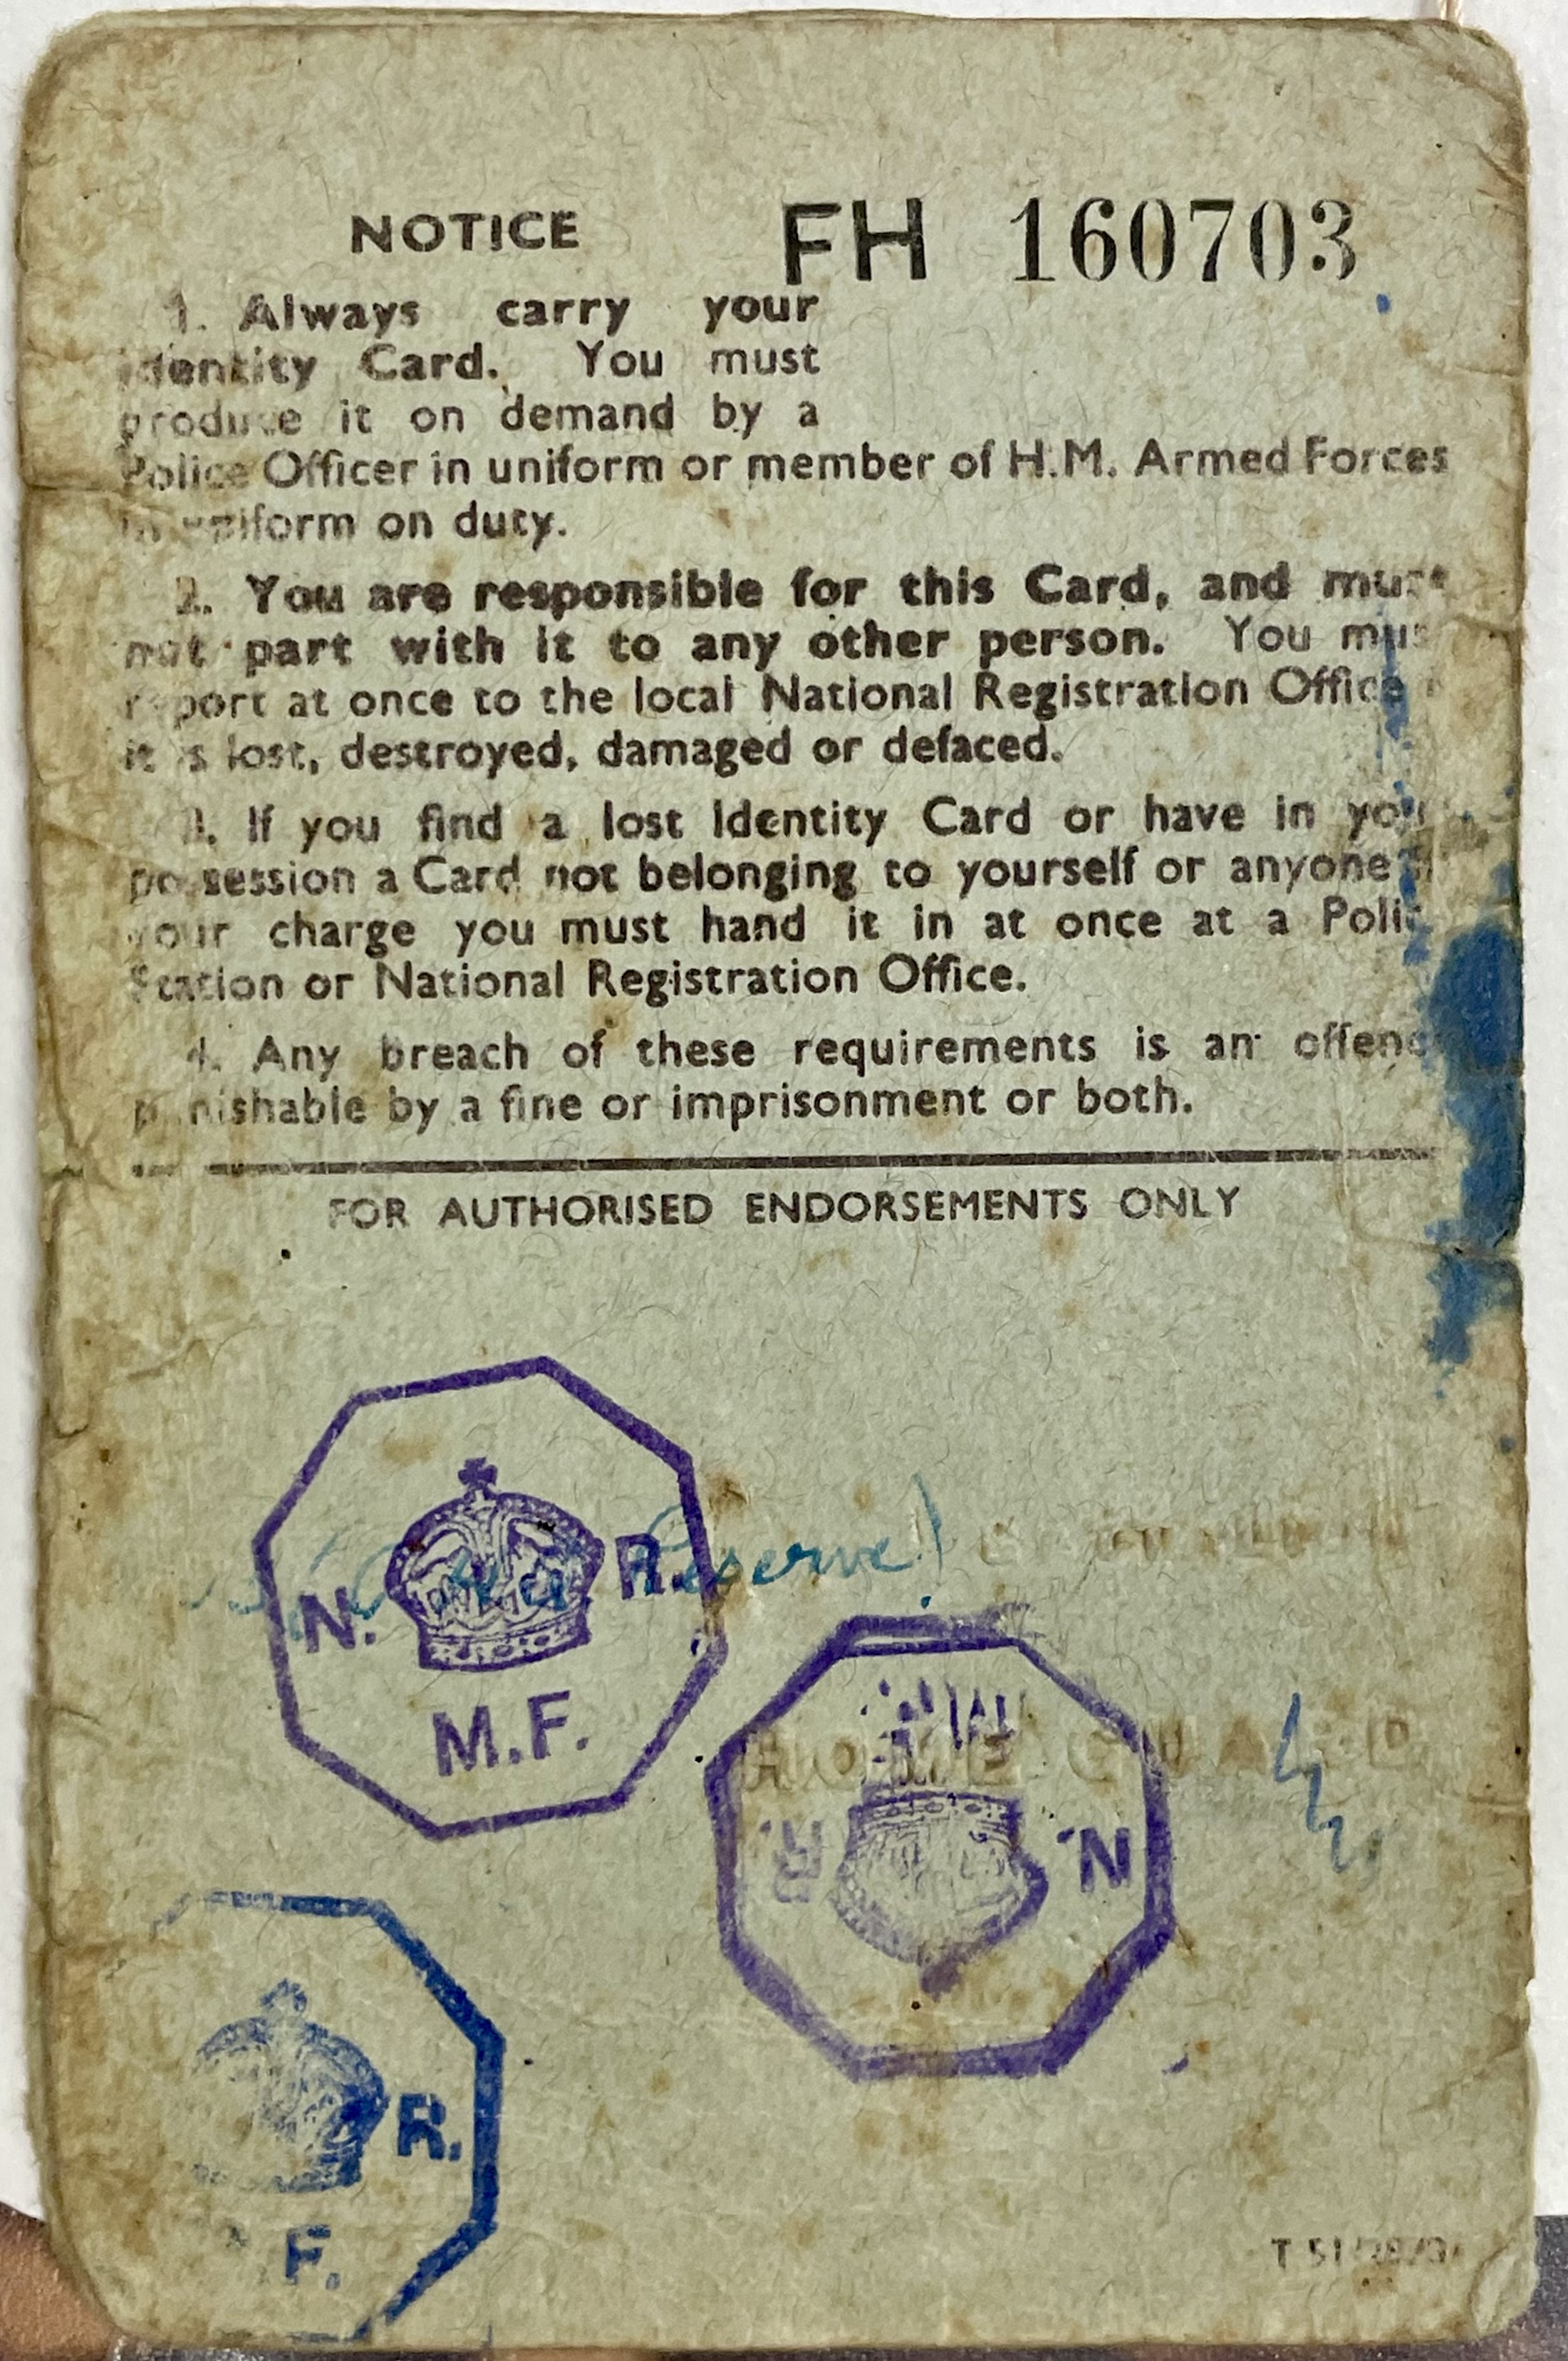 NOTICE FH 160703
1. Always carry your
Identity Card. You must
produce it on demand by a
Police Officer in uniform or member of H.M. Armed Forces
in uniform on duty.
2. You are responsible for this Card, and must
not part with it to any other person. You mus
report at once to the local National Registration Office
it is lost, destroyed, damaged or defaced.
3. If you find a lost Identity Card or have in you
possession a Card not belonging to yourself or anyone
your charge you must hand it in at once at a Polic
Station or National Registration Office.
4. Any breach of these requirements is an offenc
punishable by a fine or imprisonment or both.
FOR AUTHORISED ENDORSEMENTS ONLY
Reserve
N. R.
M.F.
HOME GUARD
R. N
R.
F.